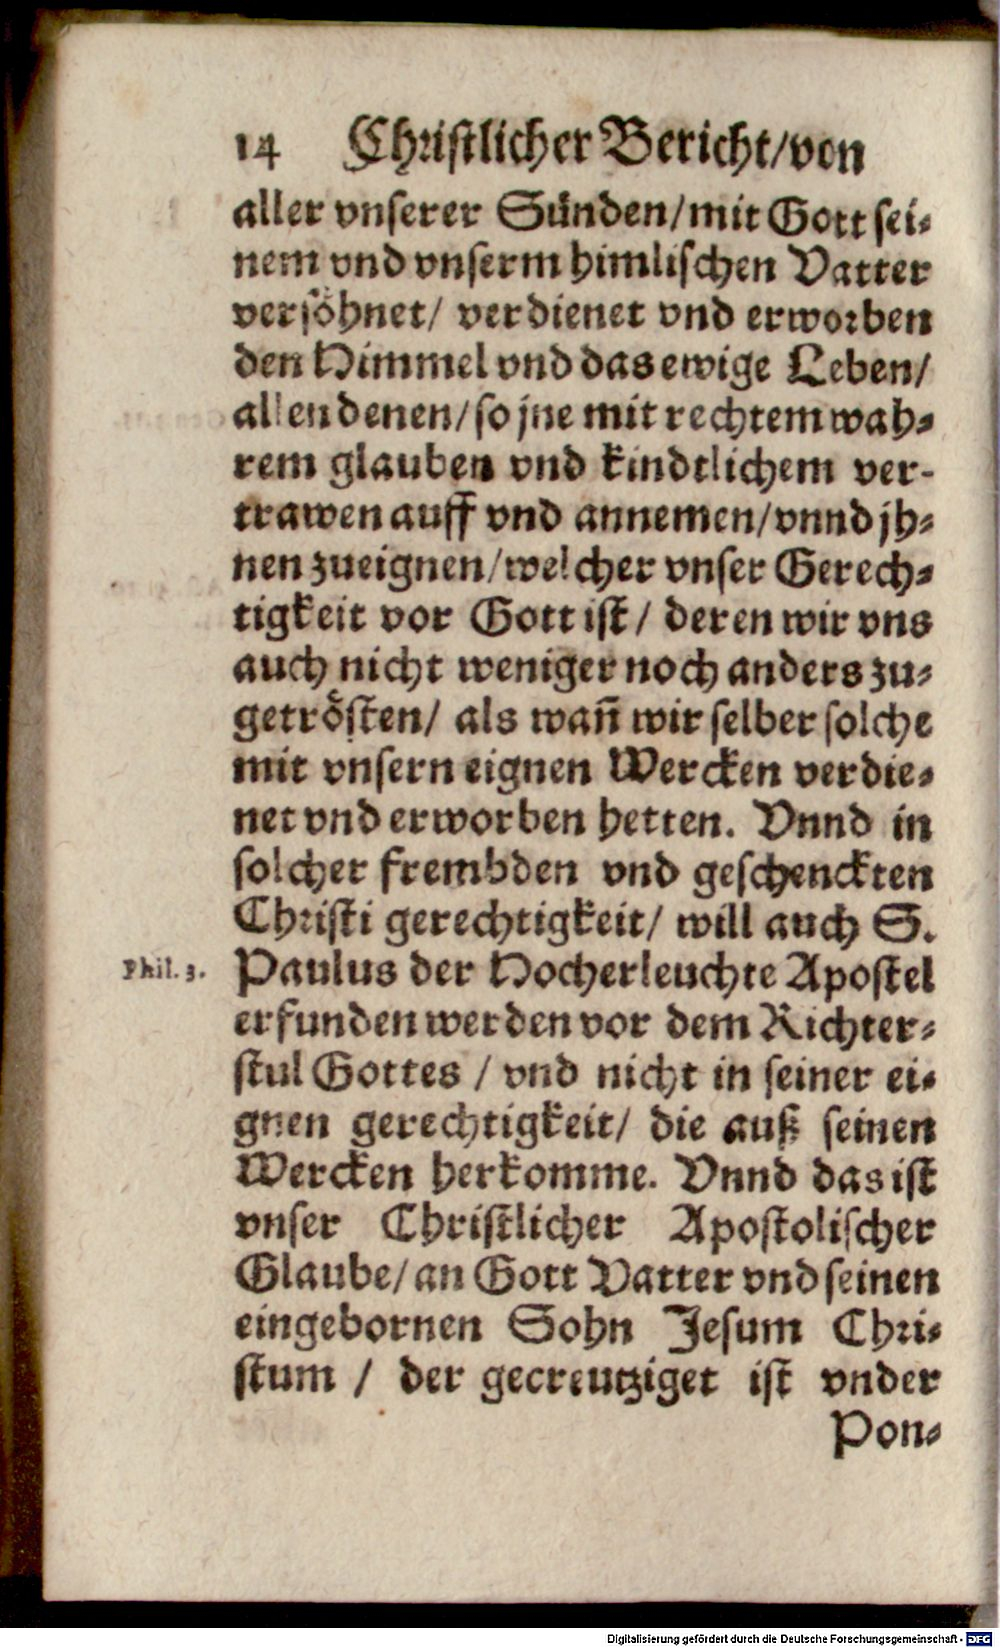 14 Christlicher Bericht/von
aller vnserer Sünden/mit Gott sei-
nem vnd vnserm himlischen Vatter
versöhnet/ verdienet vnd erworben
den Himmel vnd das ewige Leben/
allen denen/so jne mit rechtem wah-
rem glauben vnd kindtlichem ver-
trawen auff vnd annemen/vnnd jh-
nen zueignen/welcher vnser Gerech-
tigkeit vor Gott ist/ deren wir vns
auch nicht weniger noch anders zu-
getrösten/ als wañ wir selber solche
mit vnsern eignen Wercken verdie-
net vnd erworben hetten. Vnnd in
solcher frembden vnd geschenckten
Christi gerechtigkeit/ will auch S.
Phil. 3. Paulus der Hocherleuchte Apostel
erfunden werden vor dem Richter-
stul Gottes / vnd nicht in seiner ei-
gnen gerechtigkeit/ die auß seinen
Wercken herkomme. Vnnd das ist
vnser Christlicher Apostolischer
Glaube/an Gott Vatter vnd seinen
eingebornen Sohn Jesum Chri-
stum / der gecreutziget ist vnder
Pon-
Digitalisierung gefördert durch die Deutsche Forschungsgemeinschaft - DFG